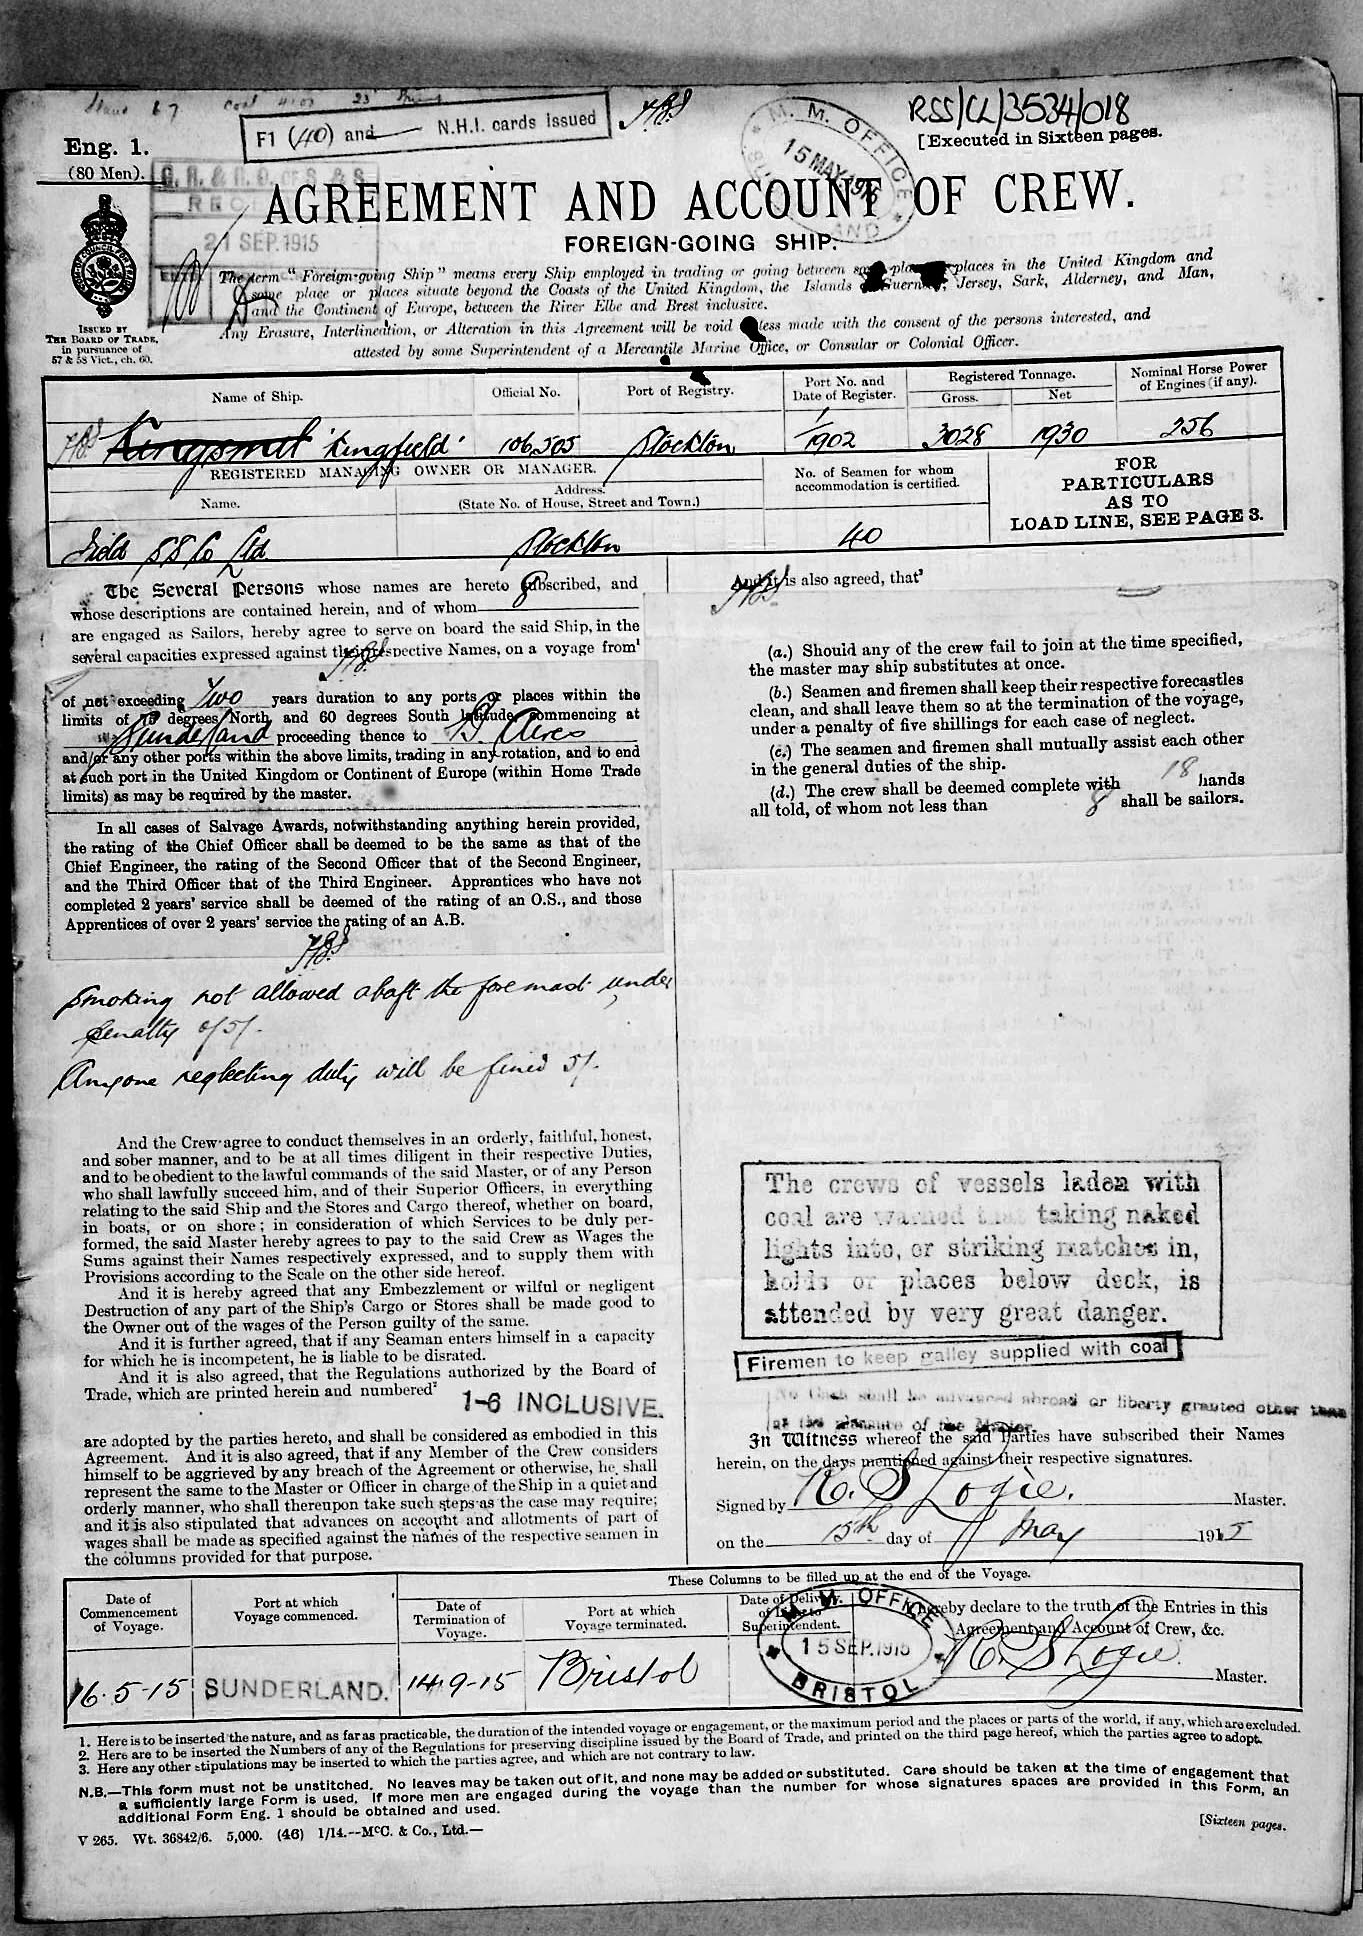 F1 (40) and N.H.I. cards issued
HBS
RSS/CL/3534/018
Eng. 1.
(80 Men).
[Executed in Sixteen pages.
M. M. OFFICE
15 MAY 1915
G. R. & R. O. OF S. & S.
21 SEP. 1915
AGREEMENT AND ACCOUNT OF CREW.
FOREIGN-GOING SHIP.
ISSUED BY
THE BOARD OF TRADE,
in pursuance of
57 & 58 Vict., ch. 60.
The term "Foreign-going Ship" means every Ship employed in trading or going between some places in the United Kingdom and
some place or places situate beyond the Coasts of the United Kingdom, the Islands Guernsey, Jersey, Sark, Alderney, and Man,
and the Continent of Europe, between the River Elbe and Brest inclusive.
Any Erasure, Interlineation, or Alteration in this Agreement will be void unless made with the consent of the persons interested, and
attested by some Superintendent of a Mercantile Marine Office, or Consular or Colonial Officer.
Name of Ship. Official No. Port of Registry. Port No. and Date of Register. Registered Tonnage. Gross. Net Nominal Horse Power of Engines (if any).
HBS Kingsmel 'Kingfield' 106,505 Stockton 1/1902 3028 1930 256
REGISTERED MANAGING OWNER OR MANAGER.
Name. Address. (State No. of House, Street and Town.) No. of Seamen for whom accommodation is certified.
FOR
PARTICULARS
AS TO
LOAD LINE, SEE PAGE 3.
Field SS Co Ltd Stockton 40
The Several Persons whose names are hereto subscribed, and
whose descriptions are contained herein, and of whom 8
are engaged as Sailors, hereby agree to serve on board the said Ship, in the
several capacities expressed against their respective Names, on a voyage from¹
HBS
of not exceeding Two years duration to any ports or places within the
limits of 75 degrees North and 60 degrees South latitude, commencing at
Sunderland proceeding thence to B. Aires
and/or any other ports within the above limits, trading in any rotation, and to end
at such port in the United Kingdom or Continent of Europe (within Home Trade
limits) as may be required by the master.
In all cases of Salvage Awards, notwithstanding anything herein provided,
the rating of the Chief Officer shall be deemed to be the same as that of the
Chief Engineer, the rating of the Second Officer that of the Second Engineer,
and the Third Officer that of the Third Engineer. Apprentices who have not
completed 2 years' service shall be deemed of the rating of an O.S., and those
Apprentices of over 2 years' service the rating of an A.B.
HBS
Smoking not allowed abaft the foremast under
penalty of 5/-
Anyone neglecting duty will be fined 5/-
And the Crew agree to conduct themselves in an orderly, faithful, honest,
and sober manner, and to be at all times diligent in their respective Duties,
and to be obedient to the lawful commands of the said Master, or of any Person
who shall lawfully succeed him, and of their Superior Officers, in everything
relating to the said Ship and the Stores and Cargo thereof, whether on board,
in boats, or on shore; in consideration of which Services to be duly per-
formed, the said Master hereby agrees to pay to the said Crew as Wages the
Sums against their Names respectively expressed, and to supply them with
Provisions according to the Scale on the other side hereof.
And it is hereby agreed that any Embezzlement or wilful or negligent
Destruction of any part of the Ship's Cargo or Stores shall be made good to
the Owner out of the wages of the Person guilty of the same.
And it is further agreed, that if any Seaman enters himself in a capacity
for which he is incompetent, he is liable to be disrated.
And it is also agreed, that the Regulations authorized by the Board of
Trade, which are printed herein and numbered²
1-6 INCLUSIVE.
are adopted by the parties hereto, and shall be considered as embodied in this
Agreement. And it is also agreed, that if any Member of the Crew considers
himself to be aggrieved by any breach of the Agreement or otherwise, he shall
represent the same to the Master or Officer in charge of the Ship in a quiet and
orderly manner, who shall thereupon take such steps as the case may require;
and it is also stipulated that advances on account and allotments of part of
wages shall be made as specified against the names of the respective seamen in
the columns provided for that purpose.
And it is also agreed, that³
HBS
(a.) Should any of the crew fail to join at the time specified,
the master may ship substitutes at once.
(b.) Seamen and firemen shall keep their respective forecastles
clean, and shall leave them so at the termination of the voyage,
under a penalty of five shillings for each case of neglect.
(c.) The seamen and firemen shall mutually assist each other
in the general duties of the ship.
(d.) The crew shall be deemed complete with 18 hands
all told, of whom not less than 8 shall be sailors.
The crews of vessels laden with
coal are warned that taking naked
lights into, or striking matches in,
holds or places below deck, is
attended by very great danger.
Firemen to keep galley supplied with coal
No Cash shall be advanced abroad or liberty granted other than
at the pleasure of the Master.
In Witness whereof the said Parties have subscribed their Names
herein, on the days mentioned against their respective signatures.
Signed by R. S Logie. Master.
on the 15th day of May 1915
These Columns to be filled up at the end of the Voyage.
Date of Commencement of Voyage. Port at which Voyage commenced. Date of Termination of Voyage. Port at which Voyage terminated. Date of Delivery of Lists to Superintendent.
I hereby declare to the truth of the Entries in this
Agreement and Account of Crew, &c.
16.5-15 SUNDERLAND. 14.9-15 Bristol
M. M. OFFICE
15 SEP. 1915
BRISTOL
R. S Logie Master.
1. Here is to be inserted the nature, and as far as practicable, the duration of the intended voyage or engagement, or the maximum period and the places or parts of the world, if any, which are excluded.
2. Here are to be inserted the Numbers of any of the Regulations for preserving discipline issued by the Board of Trade, and printed on the third page hereof, which the parties agree to adopt.
3. Here any other stipulations may be inserted to which the parties agree, and which are not contrary to law.
N.B.—This form must not be unstitched. No leaves may be taken out of it, and none may be added or substituted. Care should be taken at the time of engagement that
a sufficiently large Form is used. If more men are engaged during the voyage than the number for whose signatures spaces are provided in this Form, an
additional Form Eng. 1 should be obtained and used.
V 265. Wt. 36842/6. 5,000. (46) 1/14.—McC. & Co., Ltd.—
[Sixteen pages.